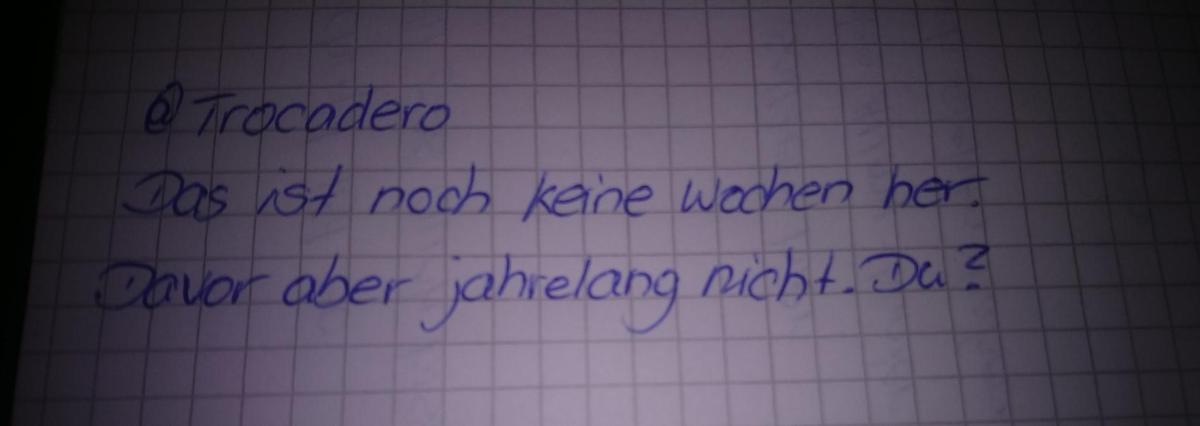 @Trocadero
Das ist noch keine Wochen her.
Davor aber jahrelang nicht. Du?